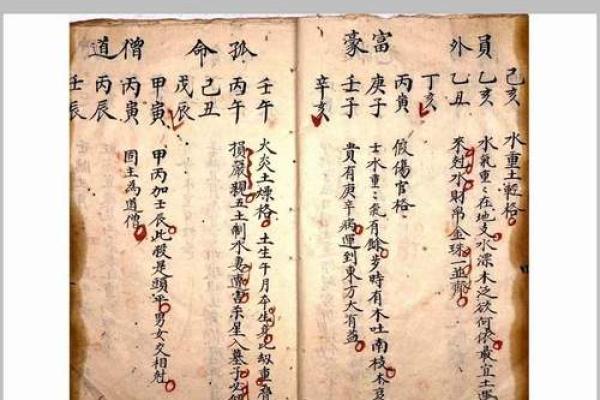 員外
己亥 水重土輕格
乙亥 水氣重々在地支水漂木泛欲何依最宜土運
乙丑 來尅水財帛金珠一並齊
丁亥
富豪
丙寅 假傷官格
庚子 土水重々氣有餘岁時有木吐南枝木
壬子 貴有庚辛病運到東方大有益
辛亥
孤命
壬午 火炎土燥格 土生午月 生身此刼重
丙午 損嚴親五土制水妻 害 星入墓子必
己丑
戊辰
僧道
甲寅 甲丙加壬辰此殺是頭平男女交相尅
丙寅 同主為道僧
丙辰
壬辰